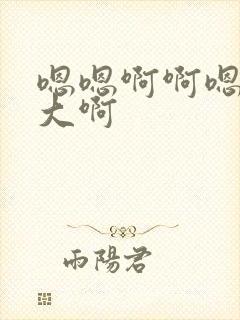 嗯嗯啊啊嗯
大啊
雨陽君